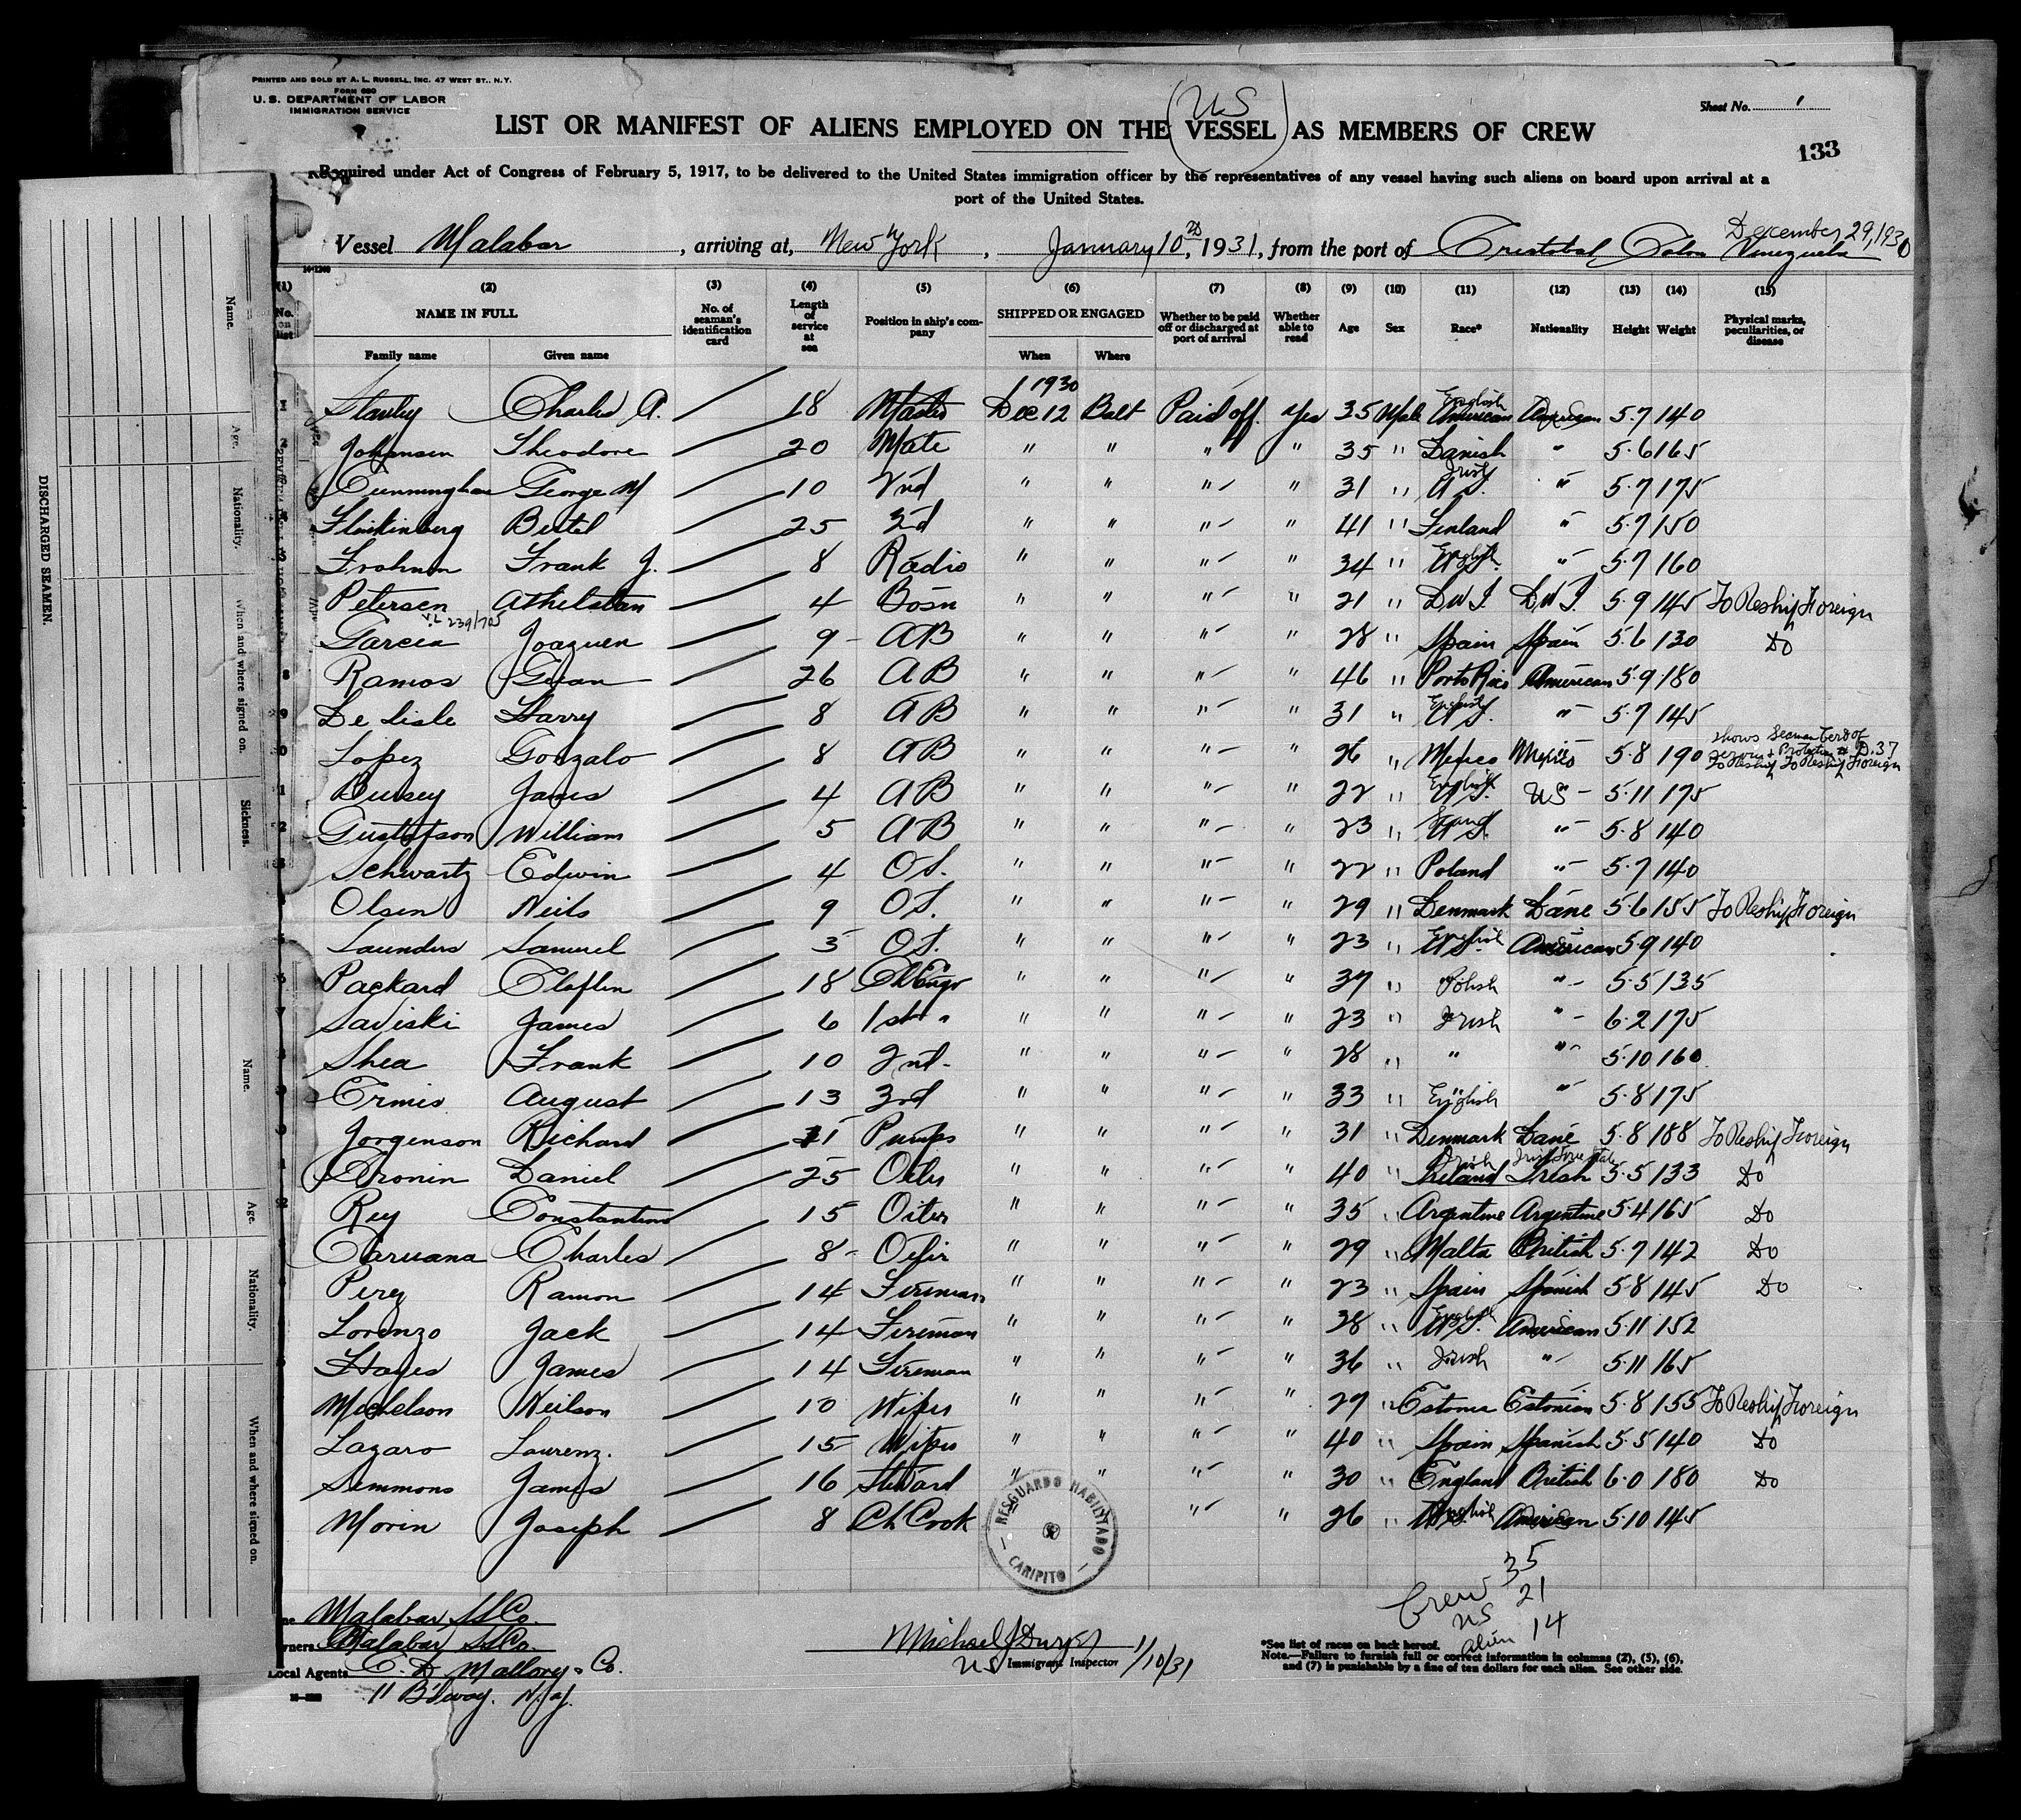 PRINTED AND SOLD BY A. L. RUSSELL, INC. 47 WEST ST., N.Y.
FORM 680
U. S. DEPARTMENT OF LABOR
IMMIGRATION SERVICE
Sheet No. 1
(US)
LIST OR MANIFEST OF ALIENS EMPLOYED ON THE VESSEL AS MEMBERS OF CREW
133
Required under Act of Congress of February 5, 1917, to be delivered to the United States immigration officer by the representatives of any vessel having such aliens on board upon arrival at a
port of the United States.
December 29, 1930
Vessel Malabar, arriving at, New York, January 10th, 1931, from the port of Cristobal, Colon Venezuela
14-1240
(1) (2) (3) (4) (5) (6) (7) (8) (9) (10) (11) (12) (13) (14) (15)
No. on list NAME IN FULL No. of seaman's identification card Length of service at sea Position in ship's company SHIPPED OR ENGAGED Whether to be paid off or discharged at port of arrival Whether able to read Age Sex Race* Nationality Height Weight Physical marks, peculiarities, or disease
Family name Given name When Where
1930
1 Stanley Charles A. 18 Master Dec 12 Balt Paid off Yes 35 Male English American American 5.7 140
2 Johansen Theodore 20 Mate " " " " 35 " Danish " 5.6 165
Cunningham George M 10 2nd " " " " 31 " Irish U S. " 5.7 175
Bertel 25 3rd " " " " 41 " Finland " 5.7 150
5 Frohman Frank J. 8 Radio " " " " 34 " English U S. " 5.7 160
Petersen Athelstan 4 Bosn " " " " 21 " D W I. D W I. 5.9 145 To Reship Foreign
V.L 239/705
Garcia Joaquen 9 AB " " " " 28 " Spain Spain 5.6 130 Do
8 Ramos Guan 26 AB " " " " 46 " Porto Rico American 5.9 180
9 De Lisle Harry 8 AB " " " " 31 " English U S. " 5.7 145
0 Lopez Gonzalo 8 AB " " " " 26 " Mexico Mexico 5.8 190 shows Seaman Cert of To Reship Foreign
1 James 4 AB " " " " 22 " English U S. US 5.11 175
2 Gustafson William 5 AB " " " " 23 " Scand U S. " 5.8 140
3 Schwartz Edwin 4 O S. " " " " 22 " Poland " 5.7 140
4 Olsen Neils 9 O S. " " " " 29 " Denmark Dane 5.6 155 To Reship Foreign
5 Saunders Samuel 3 O S. " " " " 23 " English U S. American 5.9 140
6 Packard Claflin 18 Ch Engr " " " " 37 " Polish " 5.5 135
7 Saviski James 6 1st " " " " " 23 " Irish " 6.2 175
8 Shea Frank 10 2nd " " " " 28 " " " 5.10 160
9 Ermis August 13 3rd " " " " 33 " English " 5.8 175
0 Jorgenson Richard 11 Pumps " " " " 31 " Denmark Dane 5.8 188 To Reship Foreign
1 Cronin Daniel 25 Oiler " " " " 40 " Irish Ireland Irish Free State Irish 5.5 133 Do
2 Rey Constantino 15 Oiler " " " " 35 " Argentine Argentine 5.4 165 Do
Caruana Charles 8 Oiler " " " " 29 " Malta British 5.7 142 Do
4 Perez Ramon 14 Fireman " " " " 23 " Spain Spanish 5.8 145 Do
Lorenzo Jack 14 Fireman " " " " 28 " English U S. American 5.11 152
Hayes James 14 Fireman " " " " 36 " Irish " 5.11 165
Michelson Neilson 10 Wiper " " " " 29 " Estonia Estonian 5.8 155 To Reship Foreign
Lazaro Laurenz. 15 Wiper " " " " 40 " Spain Spanish 5.5 140 Do
Simmons James 16 Steward " " " " 30 " England British 6.0 180 Do
Morin Joseph 8 Ch Cook " " " " 26 " English American 5.10 145
RESGUARDO HABILITADO
CARIPITO
Crew 35
US 21
alien 14
Malabar SS Co.
Owners Malabar SS Co.
Local Agents C. D. Mallory & Co.
11 B'dway. N.Y.
Michael J
US Immigrant Inspector 1/10/31
*See list of races on back hereof.
Note.—Failure to furnish full or correct information in columns (2), (5), (6),
and (7) is punishable by a fine of ten dollars for each alien. See other side.
DISCHARGED SEAMEN.
Name.
Age.
Nationality.
When and where signed on.
Sickness.
Name.
Age.
Nationality.
When and where signed on.